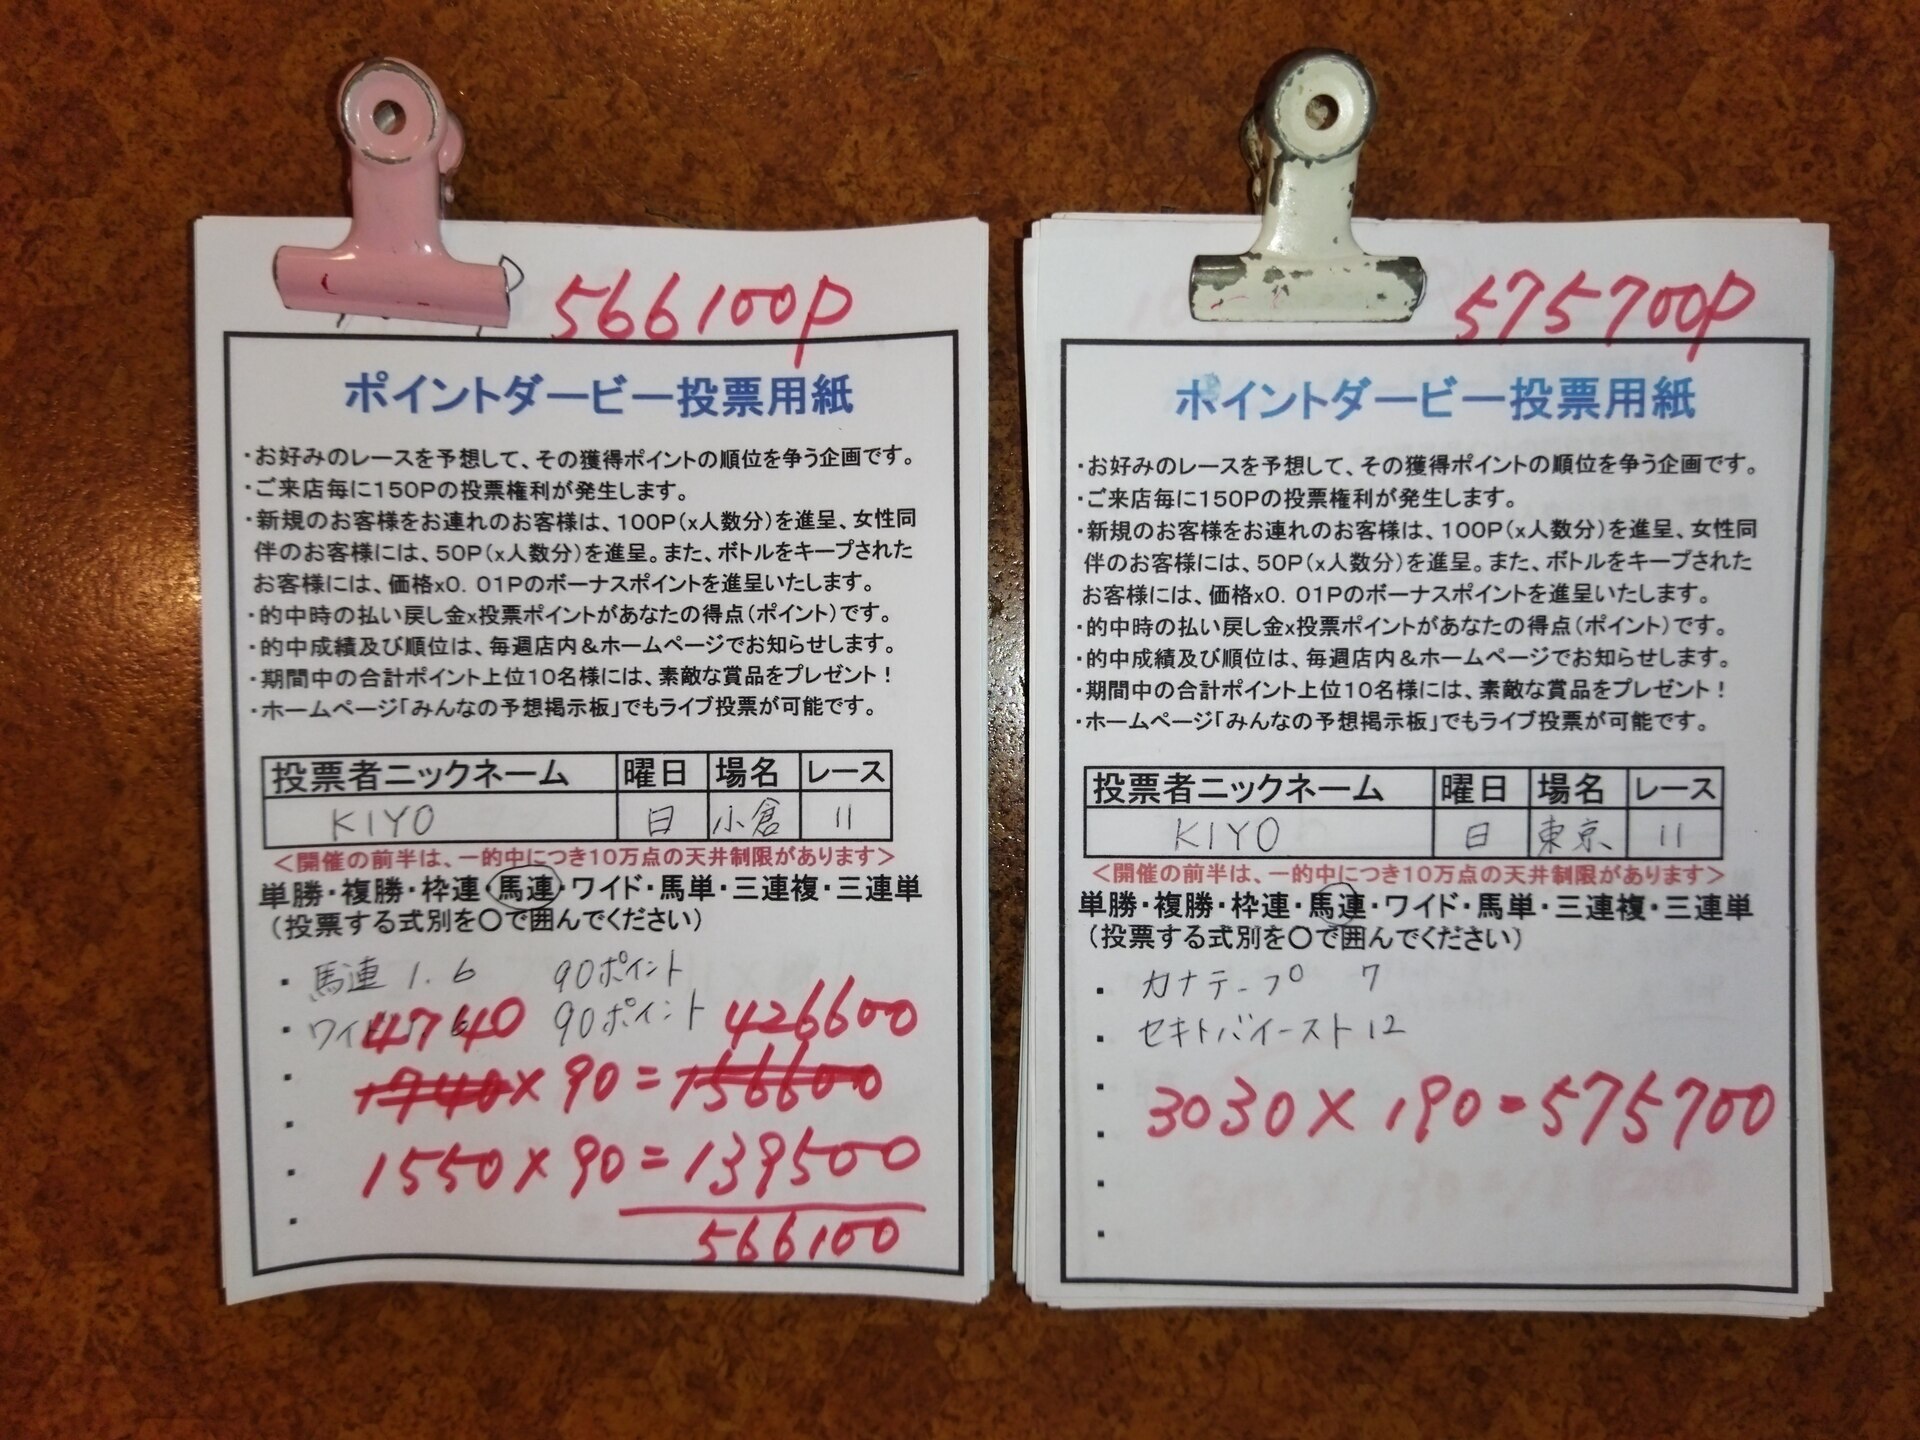 566100P
ポイントダービー投票用紙
・お好みのレースを予想して、その獲得ポイントの順位を争う企画です。
・ご来店毎に150Pの投票権利が発生します。
・新規のお客様をお連れのお客様は、100P(x人数分)を進呈、女性同
伴のお客様には、50P(x人数分)を進呈。また、ボトルをキープされた
お客様には、価格x0. 01Pのボーナスポイントを進呈いたします。
・的中時の払い戻し金x投票ポイントがあなたの得点(ポイント)です。
・的中成績及び順位は、毎週店内&ホームページでお知らせします。
・期間中の合計ポイント上位10名様には、素敵な賞品をプレゼント!
・ホームページ「みんなの予想掲示板」でもライブ投票が可能です。
投票者ニックネーム 曜日 場名 レース
KIYO 日 小倉 11
<開催の前半は、一的中につき10万点の天井制限があります>
単勝・複勝・枠連・馬連・ワイド・馬単・三連複・三連単
(投票する式別を○で囲んでください)
・馬連 1. 6 90ポイント
・ワイド 90ポイント
4740 426600
1740 x 90 = 156600
1550 x 90 = 139500
566100
575700P
ポイントダービー投票用紙
・お好みのレースを予想して、その獲得ポイントの順位を争う企画です。
・ご来店毎に150Pの投票権利が発生します。
・新規のお客様をお連れのお客様は、100P(x人数分)を進呈、女性同
伴のお客様には、50P(x人数分)を進呈。また、ボトルをキープされた
お客様には、価格x0. 01Pのボーナスポイントを進呈いたします。
・的中時の払い戻し金x投票ポイントがあなたの得点(ポイント)です。
・的中成績及び順位は、毎週店内&ホームページでお知らせします。
・期間中の合計ポイント上位10名様には、素敵な賞品をプレゼント!
・ホームページ「みんなの予想掲示板」でもライブ投票が可能です。
投票者ニックネーム 曜日 場名 レース
KIYO 日 東京 11
<開催の前半は、一的中につき10万点の天井制限があります>
単勝・複勝・枠連・馬連・ワイド・馬単・三連複・三連単
(投票する式別を○で囲んでください)
・カナテープ 7
・セキトバイースト 12
3030 x 190 = 575700